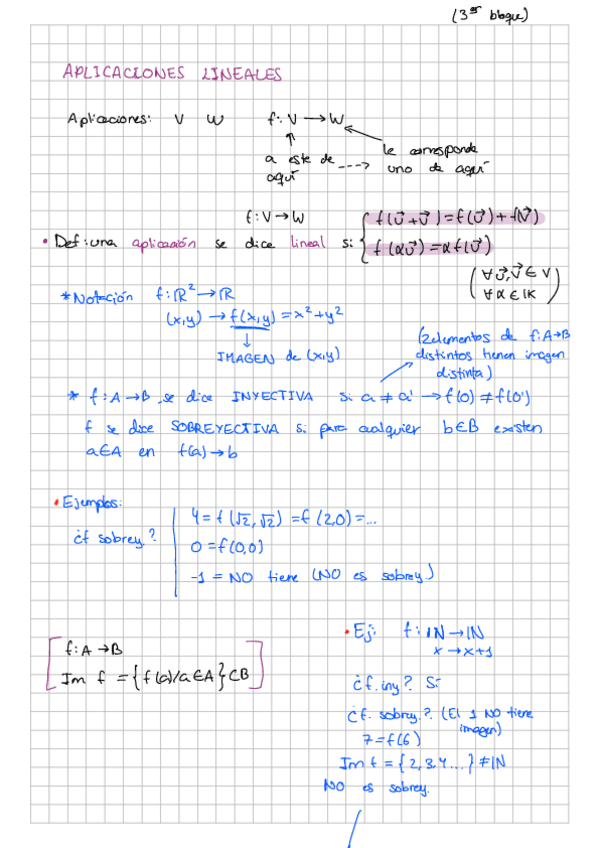 (3er bloque)
APLICACIONES LINEALES
Aplicaciones: V W f: V → W
a este de aquí ----> le corresponde uno de aquí
f: V → W
• Def: una aplicación se dice lineal si: { f(u⃗ + v⃗) = f(u⃗) + f(v⃗)
f(αu⃗) = α f(u⃗)
(∀u⃗, v⃗ ∈ V
∀α ∈ IK)
* Notación f: ℝ² → ℝ
(x,y) → f(x,y) = x² + y²
↓
IMAGEN de (x,y)
(2 elementos de f: A→B
distintos tienen imagen
distinta)
* f: A → B se dice INYECTIVA si a ≠ a' → f(a) ≠ f(a')
f se dice SOBREYECTIVA si para cualquier b∈B existen
a∈A en f(a) → b
• Ejemplos:
¿f sobrey.?
4 = f(√2, √2) = f(2,0) = ...
0 = f(0,0)
-1 = NO tiene (NO es sobrey.)
f: A → B
Im f = {f(a)/a∈A} ⊂ B
• Ej: f: IN → IN
x → x+1
¿f. iny? Sí
¿f. sobrey.? (El 1 NO tiene
imagen)
7 = f(6)
Im f = {2,3,4...} ≠ IN
NO es sobrey.